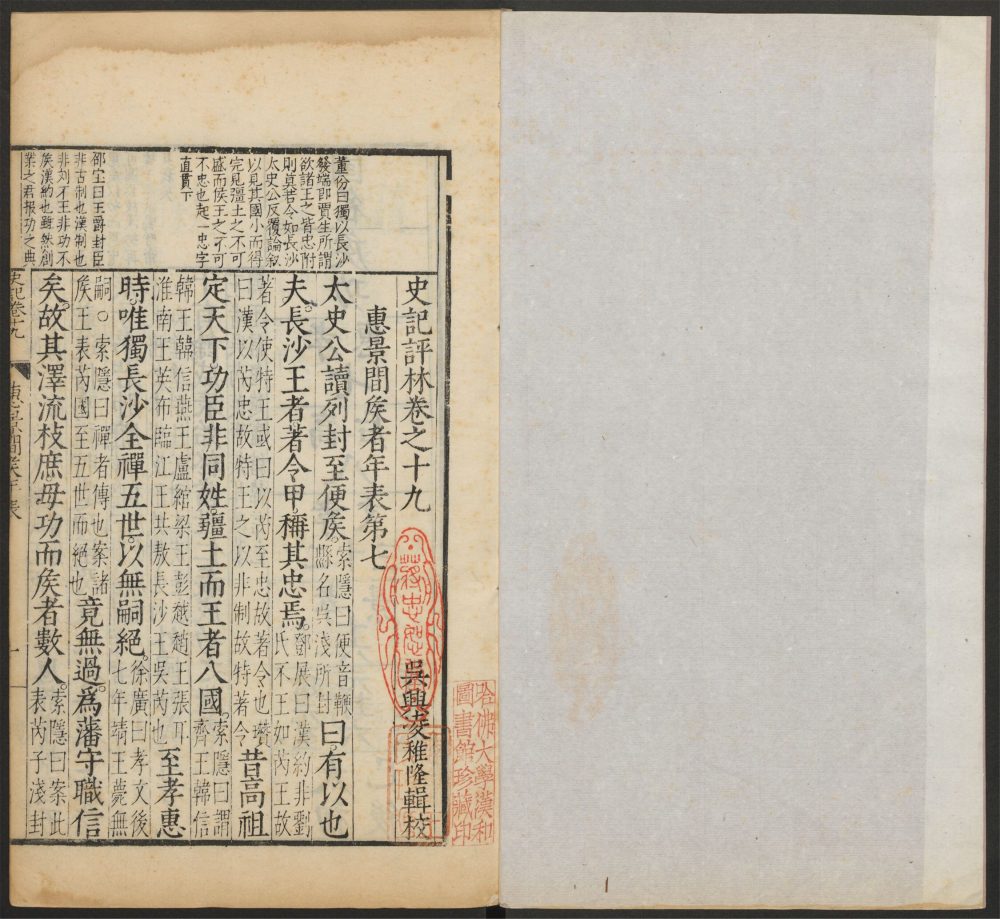 史記評林卷之十九
吳興凌稚隆輯校
惠景間矦者年表第七
太史公讀列封至便矦
索隱曰便音鞭
縣名吳淺所封
曰有以也
夫長沙王者著令甲稱其忠焉
鄧展曰漢約非劉
氏不王如芮王故
著令使特王或曰以芮至忠故著令也瓚
曰漢以芮忠故特王之以非制故特著令
昔高祖
定天下功臣非同姓疆土而王者八國
索隱曰謂
齊王韓信
韓王韓信燕王盧綰梁王彭越趙王張耳
淮南王英布臨江王共敖長沙王吳芮也
至孝惠
時唯獨長沙全禪五世以無嗣絕
徐廣曰孝文後
七年靖王薨無
嗣○索隱曰禪者傳也案諸
矦王表芮國至五世而絕也
竟無過爲藩守職信
矣故其澤流枝庶毋功而矦者數人
索隱曰案此
表芮子淺封
史記卷十九
惠景間矦年表
一
董份曰獨以長沙
發端即賈生所謂
欲諸王之皆忠附
則莫若令如長沙
太史公反覆論叙
以見其國小而得
完見疆土之不可
盛而侯王之不可
不忠也起一忠字
直貫下
邵宝曰王爵封臣
非古制也漢制也
非刘不王非功不
矦漢約也雖然創
業之君報功之典
哈佛大學漢和
圖書館珍藏印